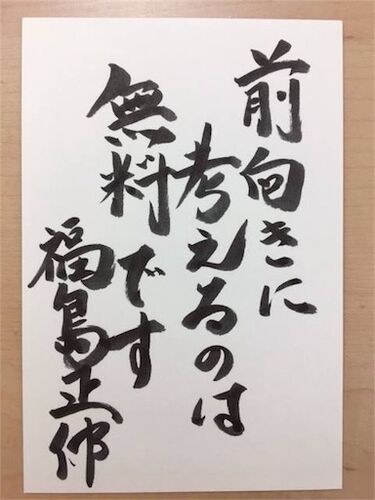 前向きに
考えるのは
無料です
福島正伸